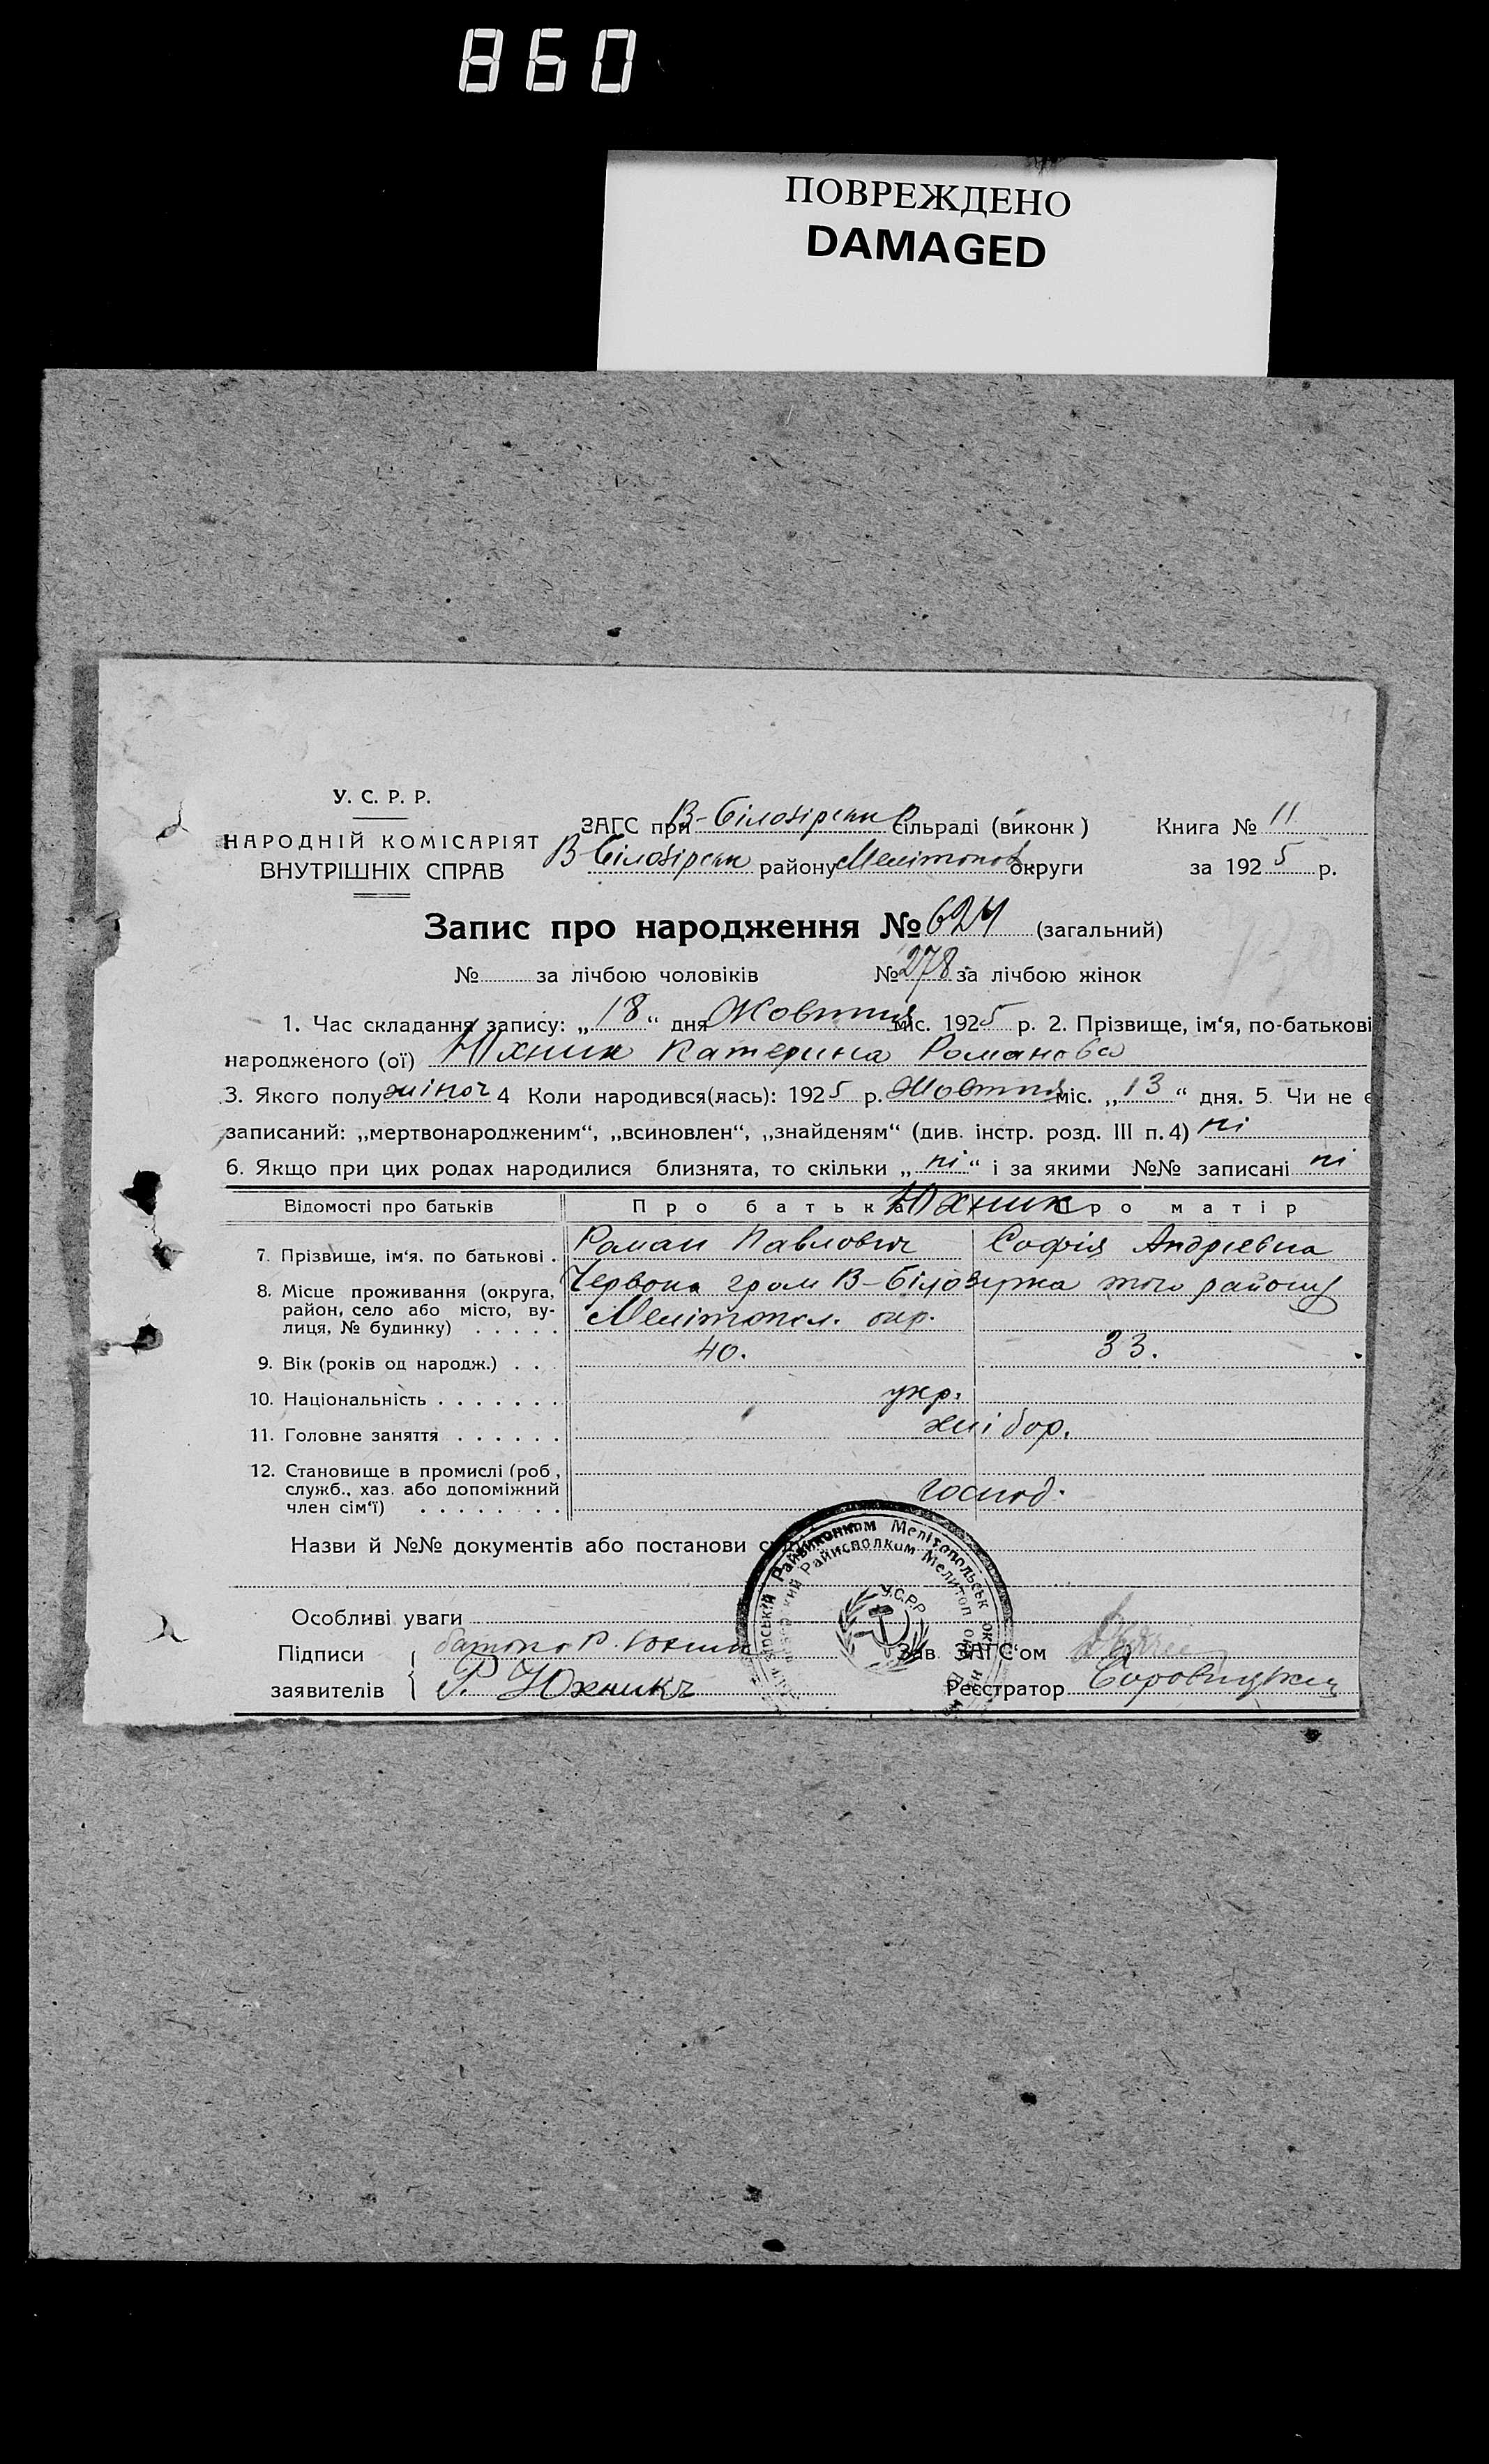 860
ПОВРЕЖДЕНО
DAMAGED
У. С. Р. Р.
НАРОДНІЙ КОМІСАРІЯТ
ВНУТРІШНІХ СПРАВ
ЗАГС при В-Білозірськ сільраді (виконк)
В-Білозірськ району Мелітопол округи
Книга № 11
за 1925 р.
Запис про народження № 624 (загальний)
№ за лічбою чоловіків № 278 за лічбою жінок
1. Час складання запису: „18“ дня Жовтня міс. 1925 р. 2. Прізвище, ім‘я, по-батькові
народженого (ої) Юхник Катерина Романова
3. Якого полу жіноч 4 Коли народився(лась): 1925 р. Жовтня міс. „13“ дня. 5. Чи не є
записаний: „мертвонародженим“, „всиновлен“, „знайденям“ (див. інстр. розд. III п. 4) ні
6. Якщо при цих родах народилися близнята, то скільки „ні“ і за якими №№ записані ні
Відомості про батьків Про батька Юхник Про матір
7. Прізвище, ім‘я, по батькові . Роман Павлович Софія Андрієвна
8. Місце проживання (округа, район, село або місто, вулиця, № будинку) . . . . . Червона гром В-Білозірка того району
Мелітопол. окр.
9. Вік (років од народж.) . . . 40. 33.
10. Національність . . . . . . . укр.
11. Головне заняття . . . . . . хлібор.
12. Становище в промислі (роб., служб., хаз. або допоміжний член сім‘ї) . . . . . . . господ.
Назви й №№ документів або постанови
Особливі уваги
Підписи батько Р. Юхник Зав. ЗАГС‘ом
заявителів Р. Юхникъ Реєстратор
Райвиконком Мелітопольськ
Райисполком Мелитоп
У.С.Р.Р